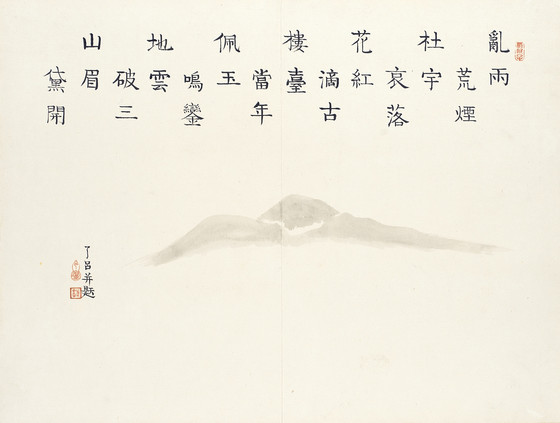 亂雨
荒煙
杜宇
哀落
花紅
滴古
樓臺
當年
佩玉
鳴鑾
地雲
破三
山眉
黛開
了呂并題